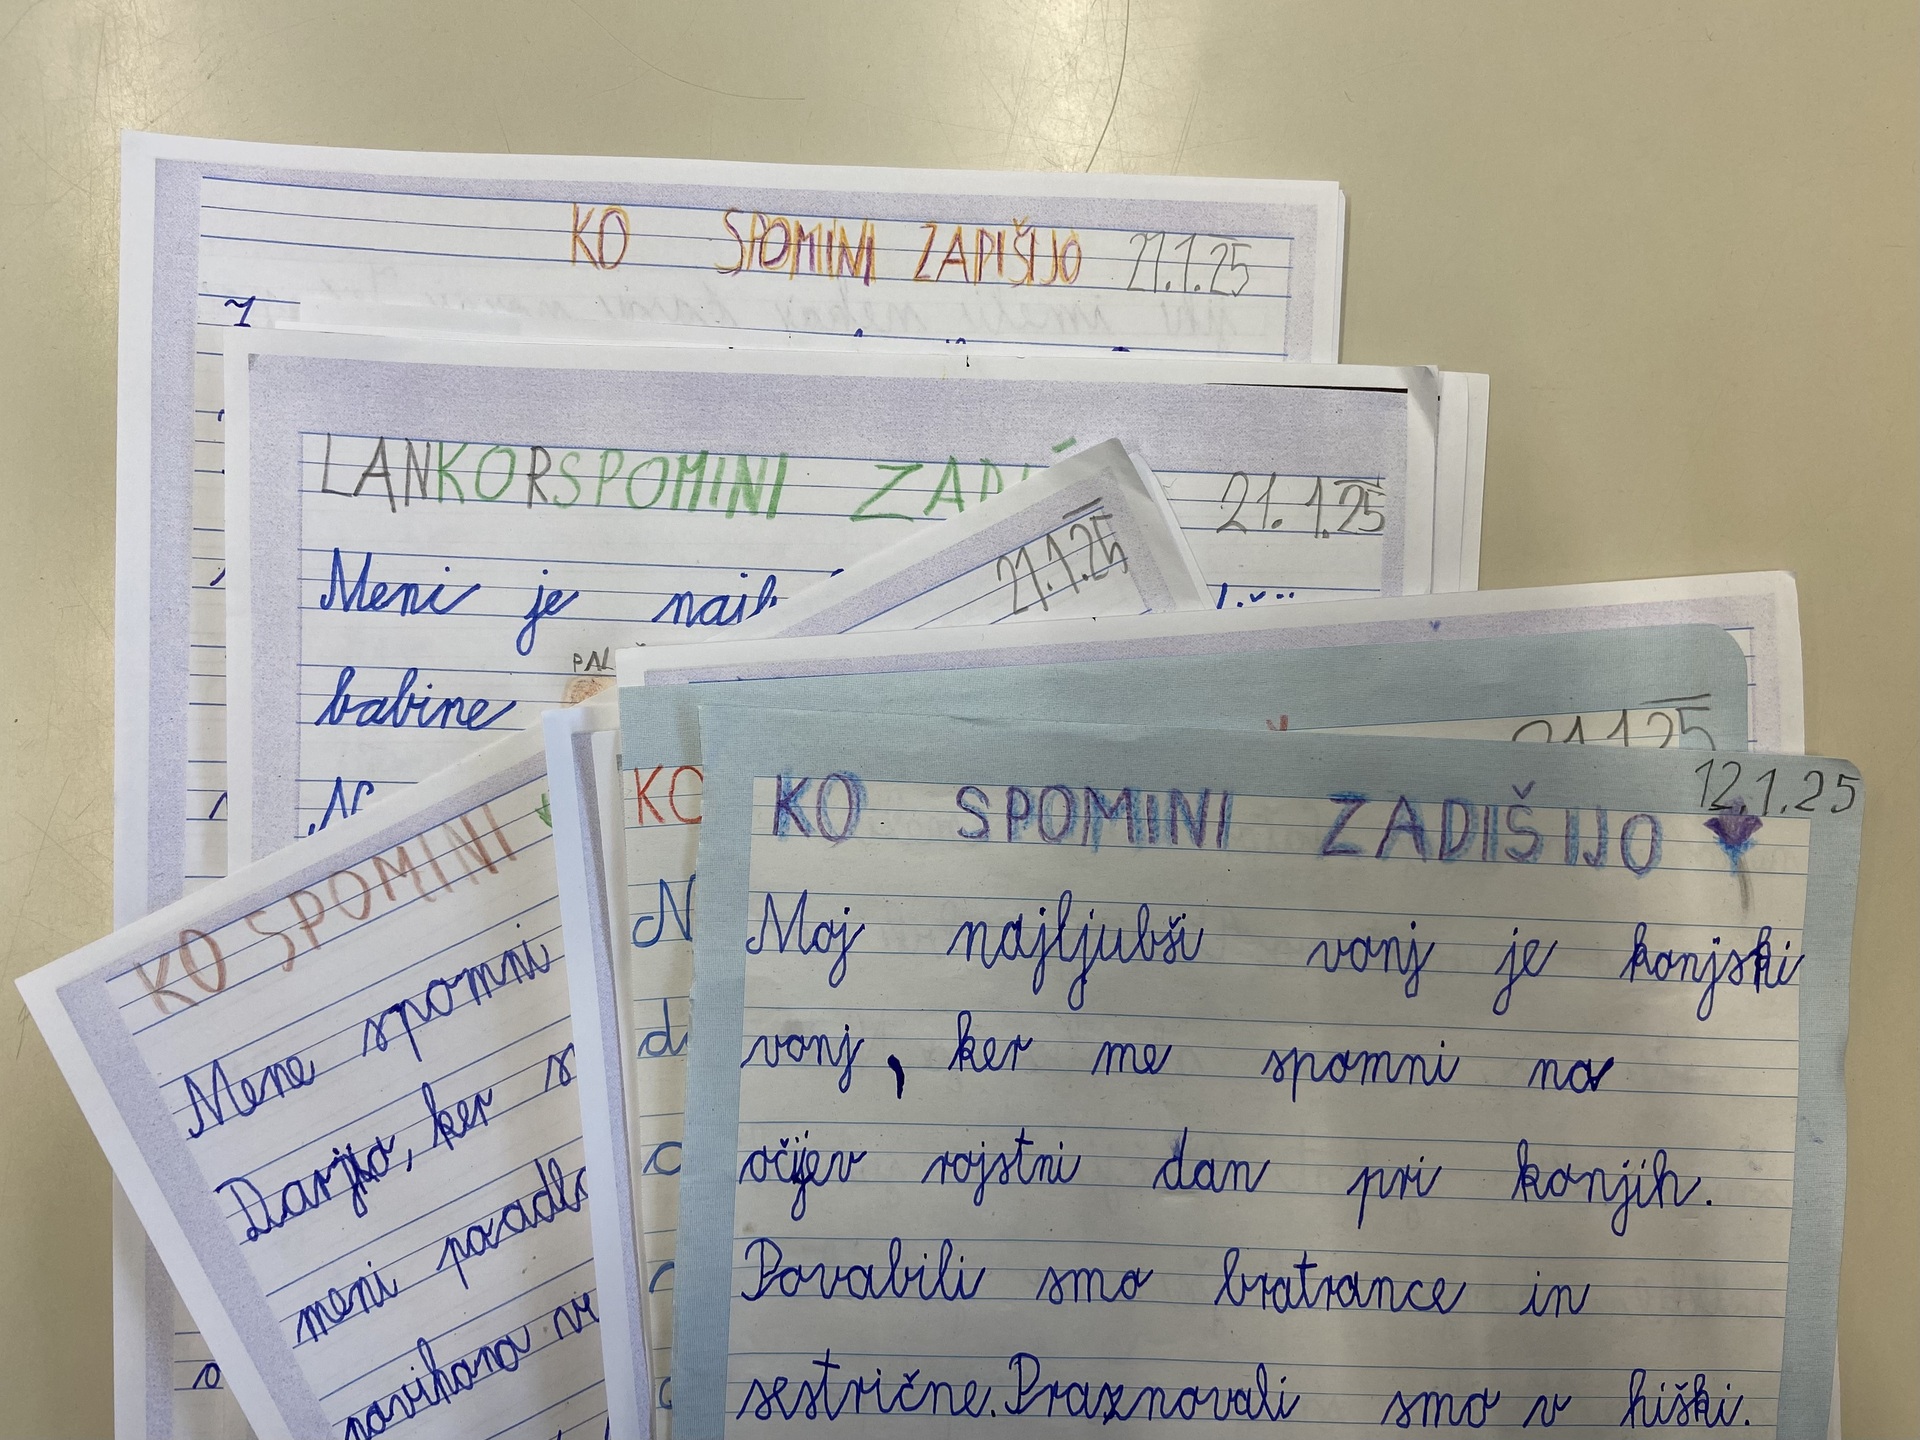 KO SPOMINI ZAPIŠIJO 21.1.25
LANKORSPOMINI 21.1.25
Meni je
babine
21.1.25
KO SPOMINI
Mene spomni
Darjo, ker
meni
KO
21.1.25
KO SPOMINI ZADIŠIJO 12.1.25
Moj najljubši vonj je konjski
vonj, ker me spomni na
očijev rojstni dan pri konjih.
Povabili smo bratrance in
sestrične. Praznovali smo v hiški.